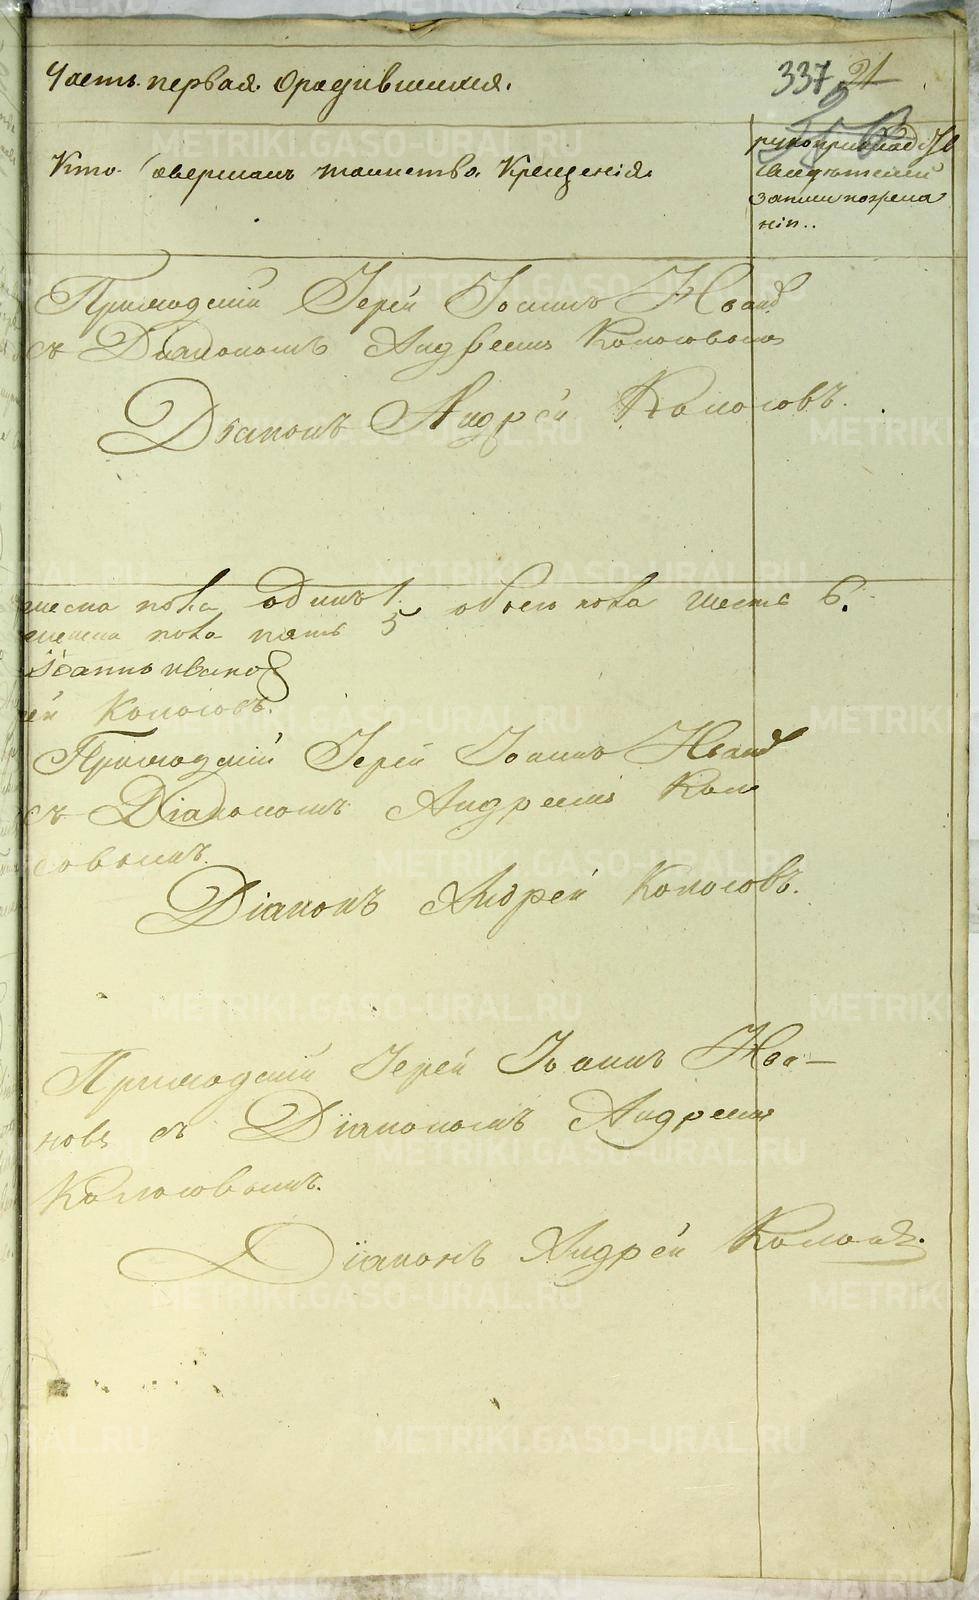 Часть первая о родившихся.
337 21
Кто совершалъ таинство Крещенія.
рукоприклад
свидѣтелей
записи пожела
нію..
Приходскій Іерей Іоаннъ Иванов
съ Діакономъ Андреемъ Колосовымъ
Діаконъ Андрей Колосовъ.
ческа пола одинъ 1. обоего пола шесть 6.
женска пола пять 5
Іоаннъ Иванов
ей Колосовъ.
Приходскій Іерей Іоаннъ Иванов
съ Діакономъ Андреемъ Коло
совымъ.
Діаконъ Андрей Колосовъ.
Приходскій Іерей Іоаннъ Ива-
новъ съ Діакономъ Андреемъ
Колосовымъ.
Діаконъ Андрей Колосовъ.
METRIKI.GASO-URAL.RU